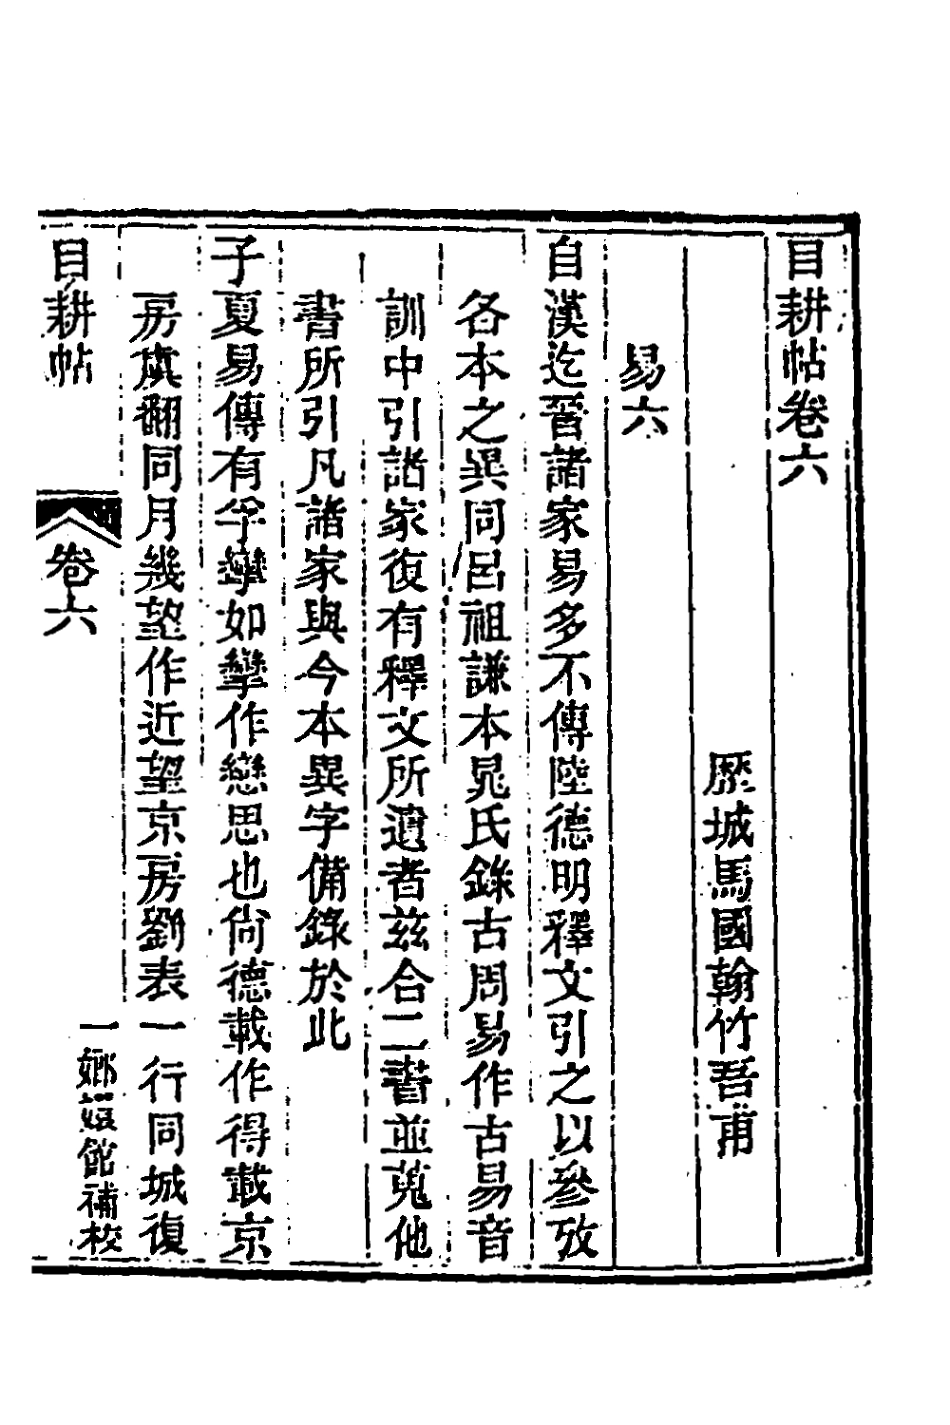 目耕帖卷六
歷城馬國翰竹吾甫
易六
自漢迄晉諸家易多不傳陸德明釋文引之以參攷
各本之異同呂祖謙本晁氏錄古周易作古易音
訓中引諸家復有釋文所遺者茲合二書並蒐他
書所引凡諸家與今本異字備錄於此
子夏易傳有孚攣如攣作戀思也尙德載作得載京
房虞翻同月幾望作近望京房劉表一行同城復
目耕帖
卷六
一
嫏嬛館補校